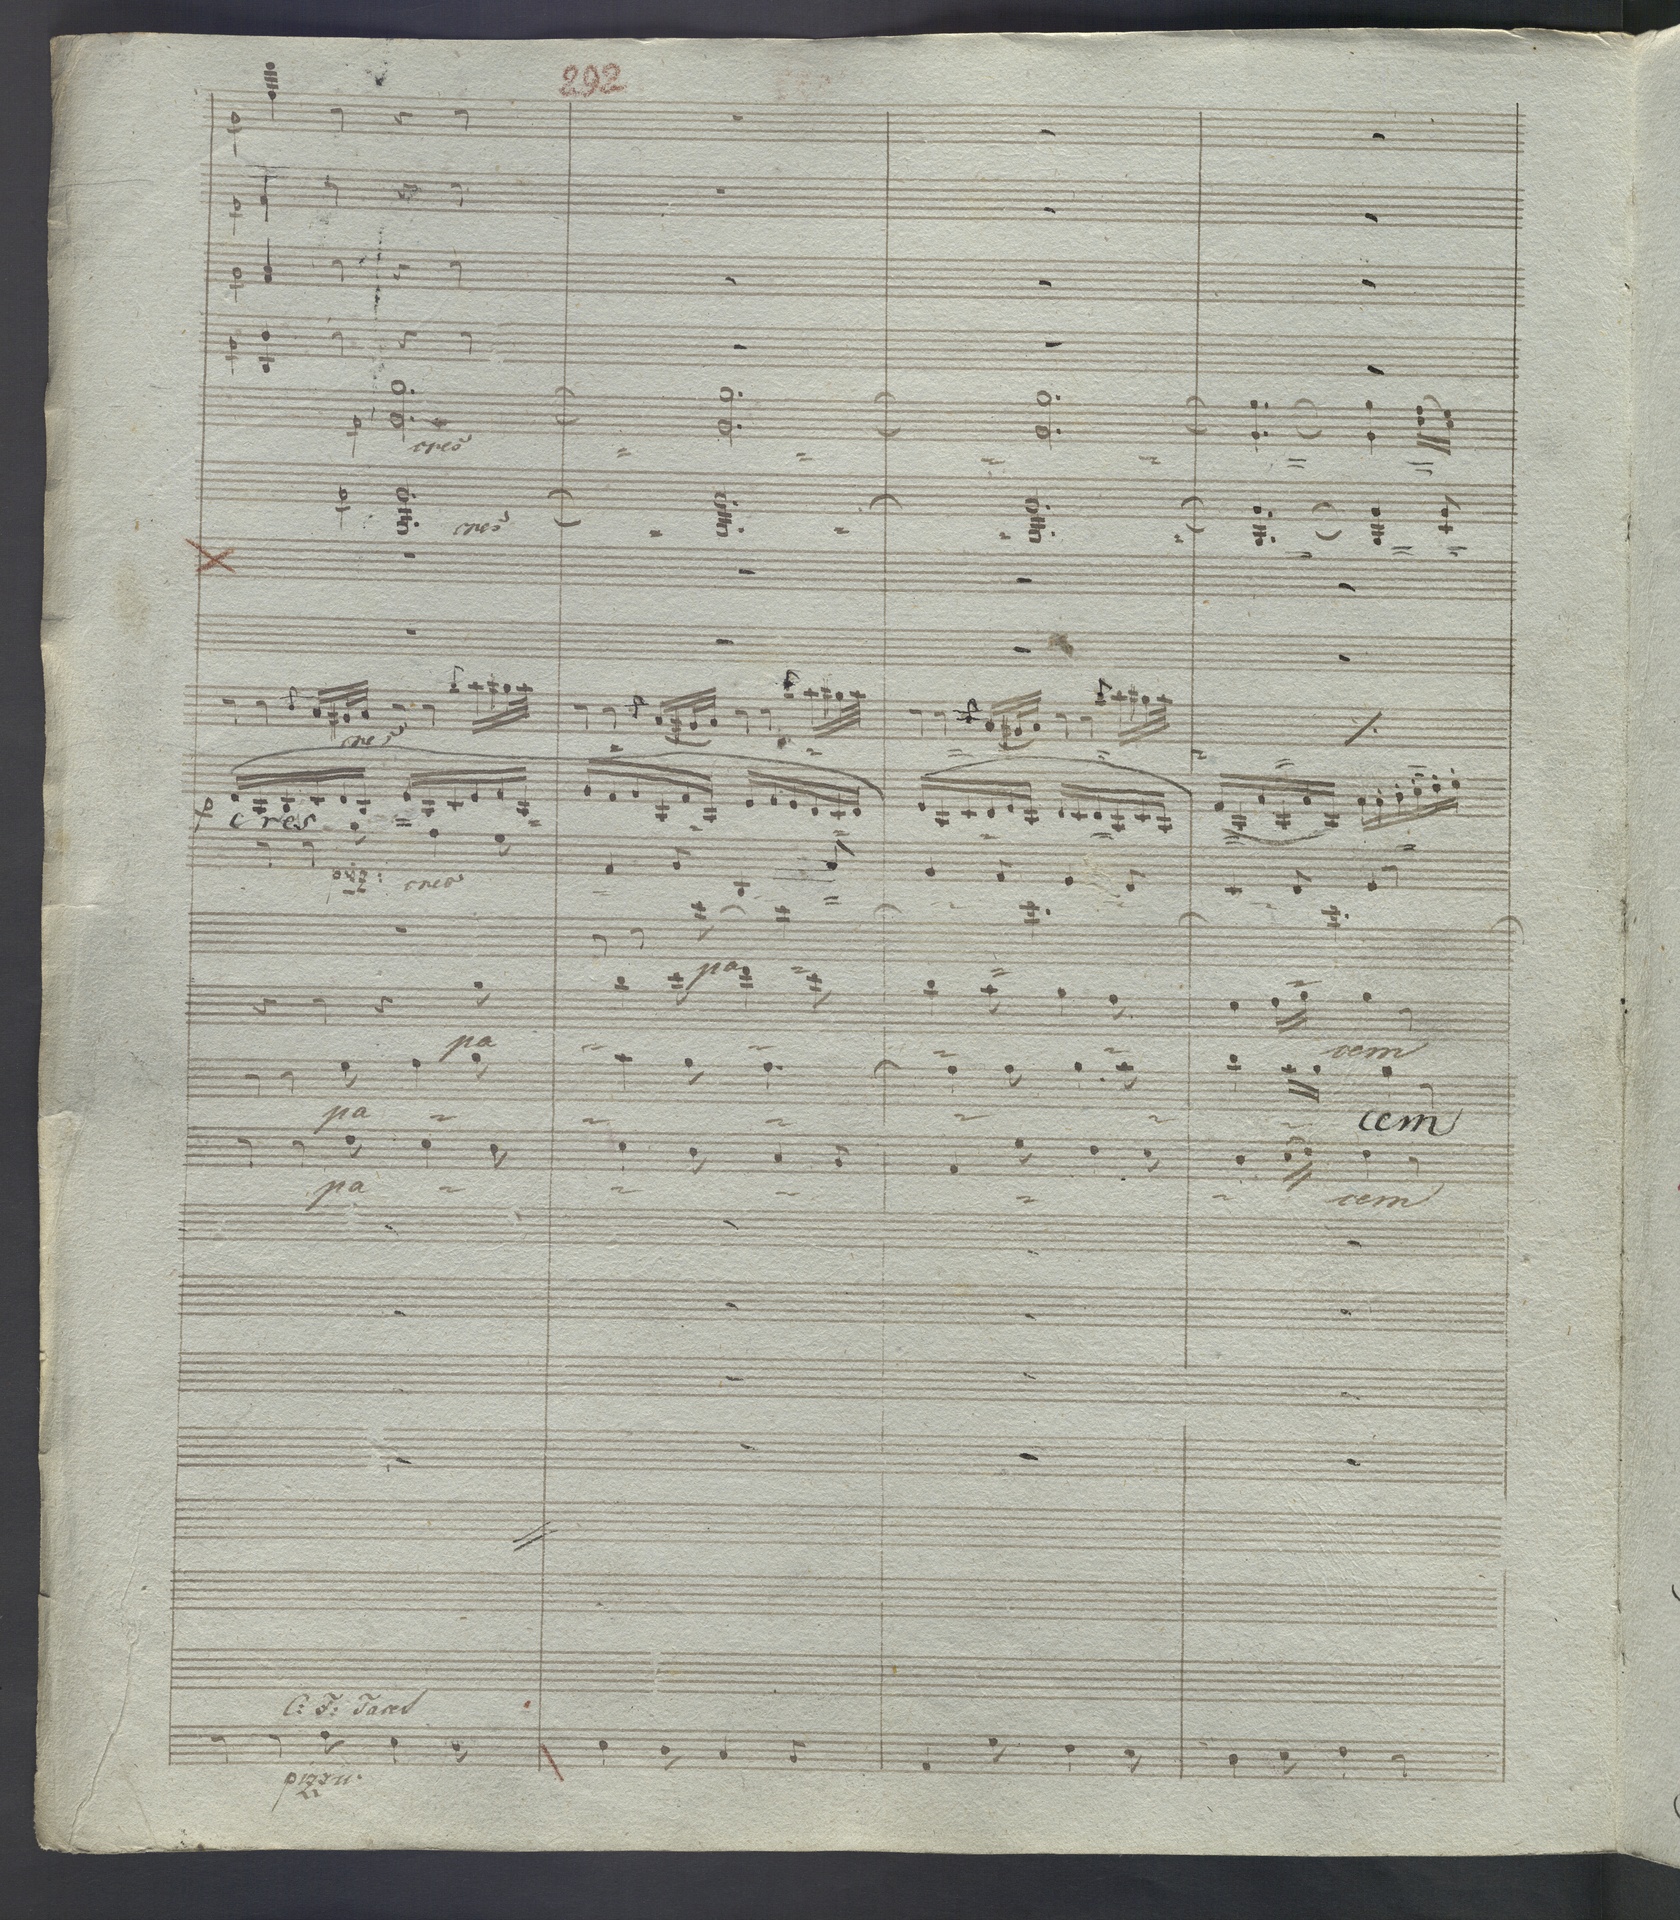 292
cres
cres
cres
cres
pizz: cres
pa
pa
cem
pa
cem
pa
cem
C: F: Tacet
pizzi.